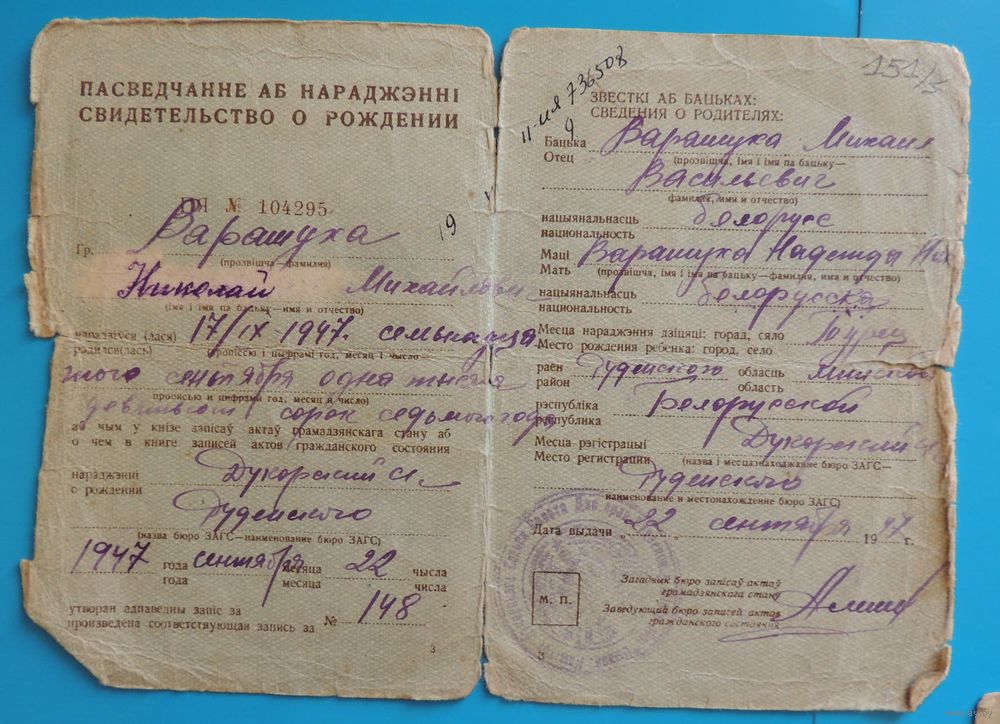 ПАСВЕДЧАННЕ АБ НАРАДЖЭННІ
СВИДЕТЕЛЬСТВО О РОЖДЕНИИ
ПЯ № 104295
19
Гр. Варашуха
(прозвішча—фамилия)
Николай Михайлович
(імя і імя па бацьку—имя и отчество)
нарадзіўся (лася) 17/IX 1947. семнадца
родился(лась) (пропіссю і цыфрамі год, месяц і число—
того сентября одна тысяча
прописью и цифрами год, месяц и число)
девятьсот сорок седьмого года
аб чым у кнізе запісаў актаў грамадзянскага стану аб
о чем в книге записей актов гражданского состояния
нараджэнні Дукорский с
о рождении
Руденского
(назва бюро ЗАГС—наименование бюро ЗАГС)
1947 года сентября месяца 22 чысла
года месяца числа
утворан адпаведны запіс за
произведена соответствующая запись за № 148
3
II-ИЯ 736508
151/
ЗВЕСТКІ АБ БАЦЬКАХ:
СВЕДЕНИЯ О РОДИТЕЛЯХ:
Бацька Варашуха Михаил
Отец (прозвішча, імя і імя па бацьку—
Васильевич
фамилия, имя и отчество)
нацыянальнасць белорусс
национальность
Маці Варашуха Надежды
Мать (прозвішча, імя і імя па бацьку—фамилия, имя и отчество)
нацыянальнасць белорусска
национальность
Месца нараджэння дзіцяці: горад, сяло Турец
Место рождения ребенка: город, село
раен Руденского обласць Минской
район область
рэспубліка Белорусской
республика
Месца рэгістрацыі Дукорский с
Место регистрации (назва і месцазнаходжанне бюро ЗАГС—
Руденского
наименование и местонахождение бюро ЗАГС)
Дата выдачи „22„ сентября 1947 г.
М. П.
Загадчык бюро запісаў актаў
грамадзянскага стану
Заведующий бюро записей актов
гражданского состояния
3